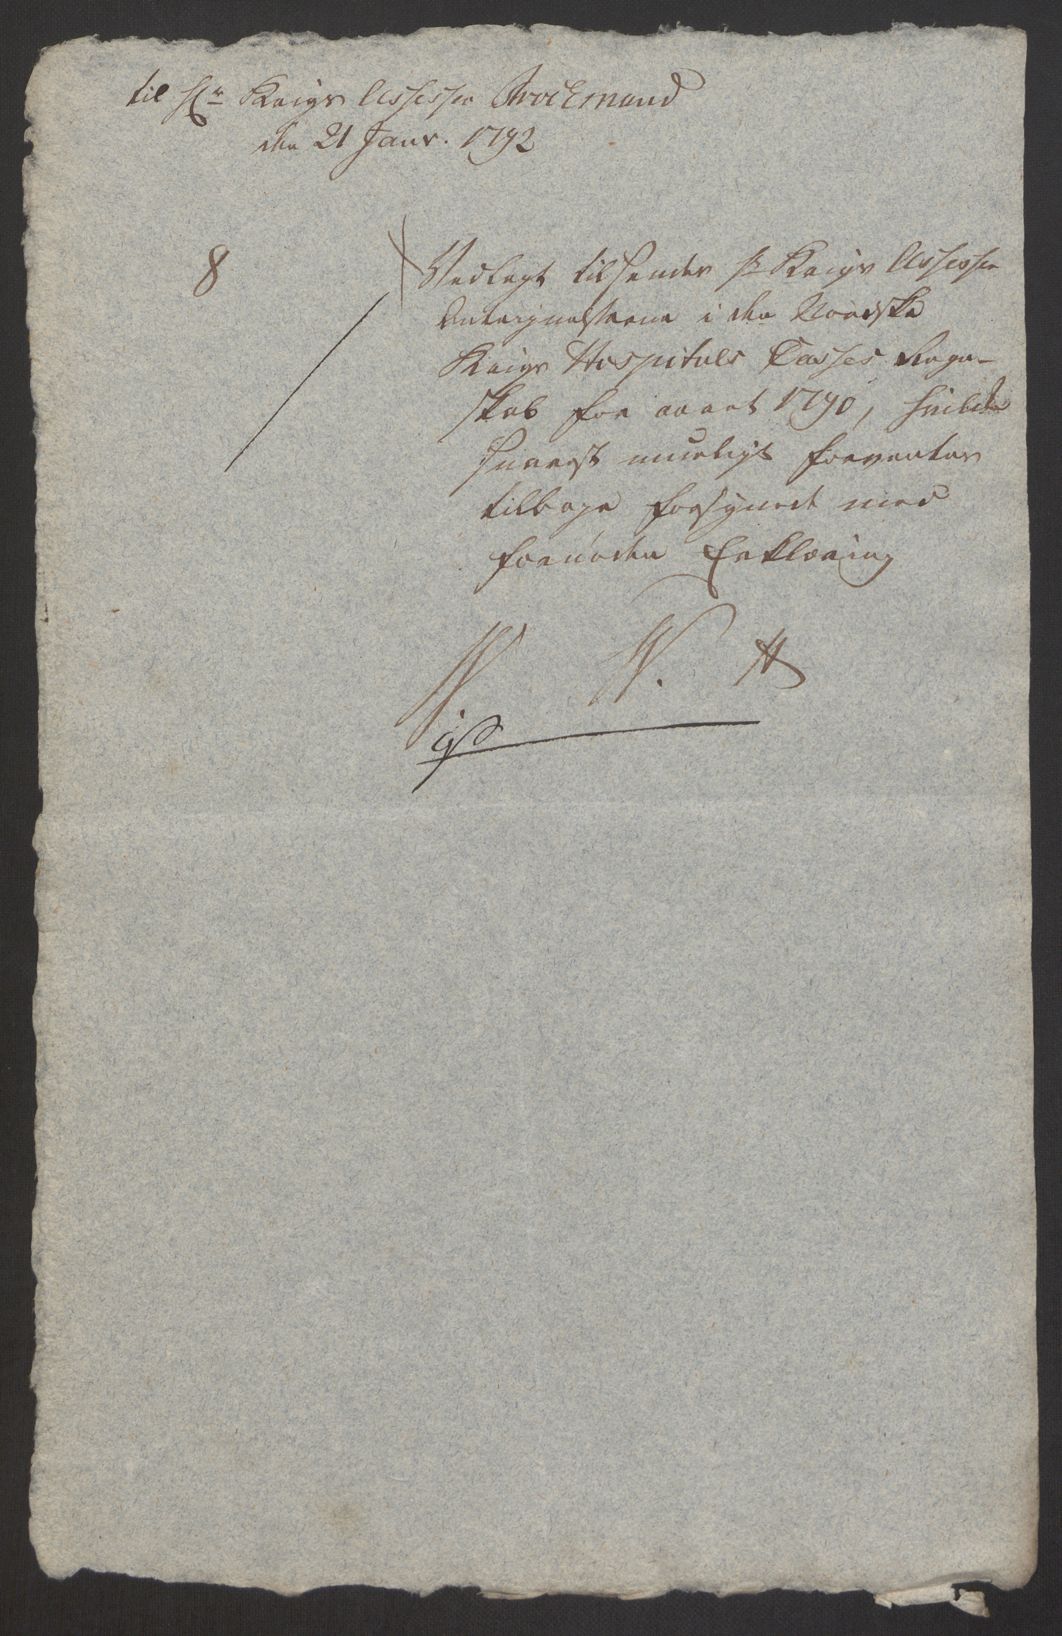 til Hr Krigs Assessor Brockmand
den 21 Janv. 1792
8
Vedlagt tilsendes Hr Krigs Assessor
Antegnelserne i den Norske
Krigs Hospitals Casses Regn-
skab for aaret 1790, hvilke
snarest mueligt forventes
tilbage forsynet med
fornøden Erklæring